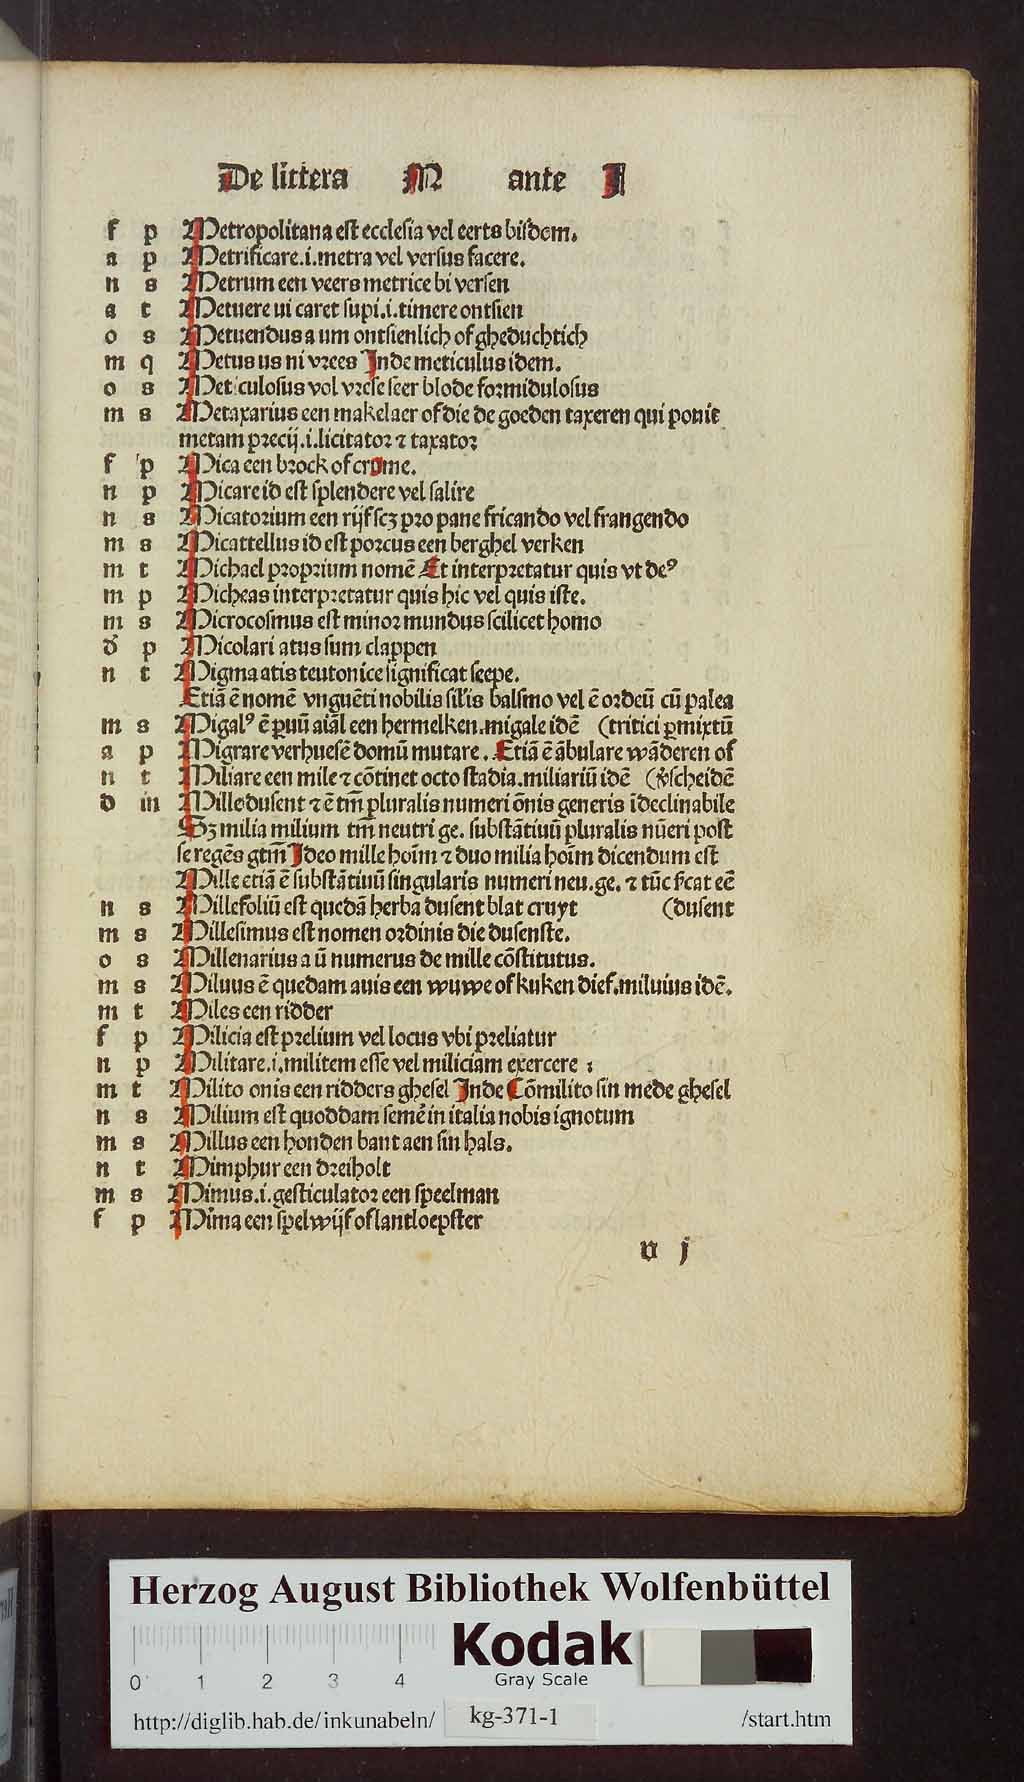 De littera M ante I
f p Metropolitana est ecclesia vel eerts bisdom.
a p Metrificare.i.metra vel versus facere.
n s Metrum een veers metrice bi versen
a t Metuere ui caret supi.i.timere ontsien
o s Metuendus a um ontsienlich of gheduchtich
m q Metus us ni vrees Inde meticulus idem.
o s Meticulosus vol vrese seer blode formidulosus
m s Metaxarius een makelaer of die de goeden taxeren qui ponit
metam precij.i.licitator ⁊ taxator
f p Mica een brock of crome.
n p Micare id est splendere vel salire
n s Micatorium een rijf scꝫ pro pane fricando vel frangendo
m s Micattellus id est porcus een berghel verken
m t Michael proprium nomē Et interpretatur quis vt deꝰ
m p Micheas interpretatur quis hic vel quis iste.
m s Microcosmus est minor mundus scilicet homo
d p Micolari atus sum clappen
n t Migma atis teutonice significat seepe.
Etiā ē nomē vnguēti nobilis sil'is balsmo vel ē ordeū cū palea
m s Migalꝰ ē ꝑuū aīal een hermelken.migale idē (tritici ꝑmixtū
a p Migrare verhuesē domū mutare. Etiā ē ābulare wāderen of
n t Miliare een mile ⁊ cōtinet octo stadia.miliariū idē (v̓scheidē
d in Mille dusent ⁊ ē tm̄ pluralis numeri ōnis generis īdeclinabile
Sꝫ milia milium tm̄ neutri ge. substātiuū pluralis nūeri post
se regēs gtm̄ Ideo mille hoīm ⁊ duo milia hoīm dicendum est
Mille etiā ē substātiuū singularis numeri neu.ge. ⁊ tūc s̓icat eē
n s Millefoliū est quedā herba dusent blat cruyt (dusent
m s Millesimus est nomen ordinis die dusenste.
o s Millenarius a ū numerus de mille cōstitutus.
m s Miluus ē quedam auis een wuwe of kuken dief.miluius idē.
m t Miles een ridder
f p Milicia est prelium vel locus vbi preliatur
n p Militare.i.militem esse vel miliciam exercere :
m t Milito onis een ridders ghesel Inde Cōmilito sin mede ghesel
n s Milium est quoddam semē in italia nobis ignotum
m s Millus een honden bant aen sin hals.
n t Mimphur een dreiholt
m s Mimus.i.gesticulator een speelman
f p Mima een spelwijf of lantloepster
n j
Herzog August Bibliothek Wolfenbüttel
0 1 2 3 4
Kodak
Gray Scale
http://diglib.hab.de/inkunabeln/ kg-371-1 /start.htm